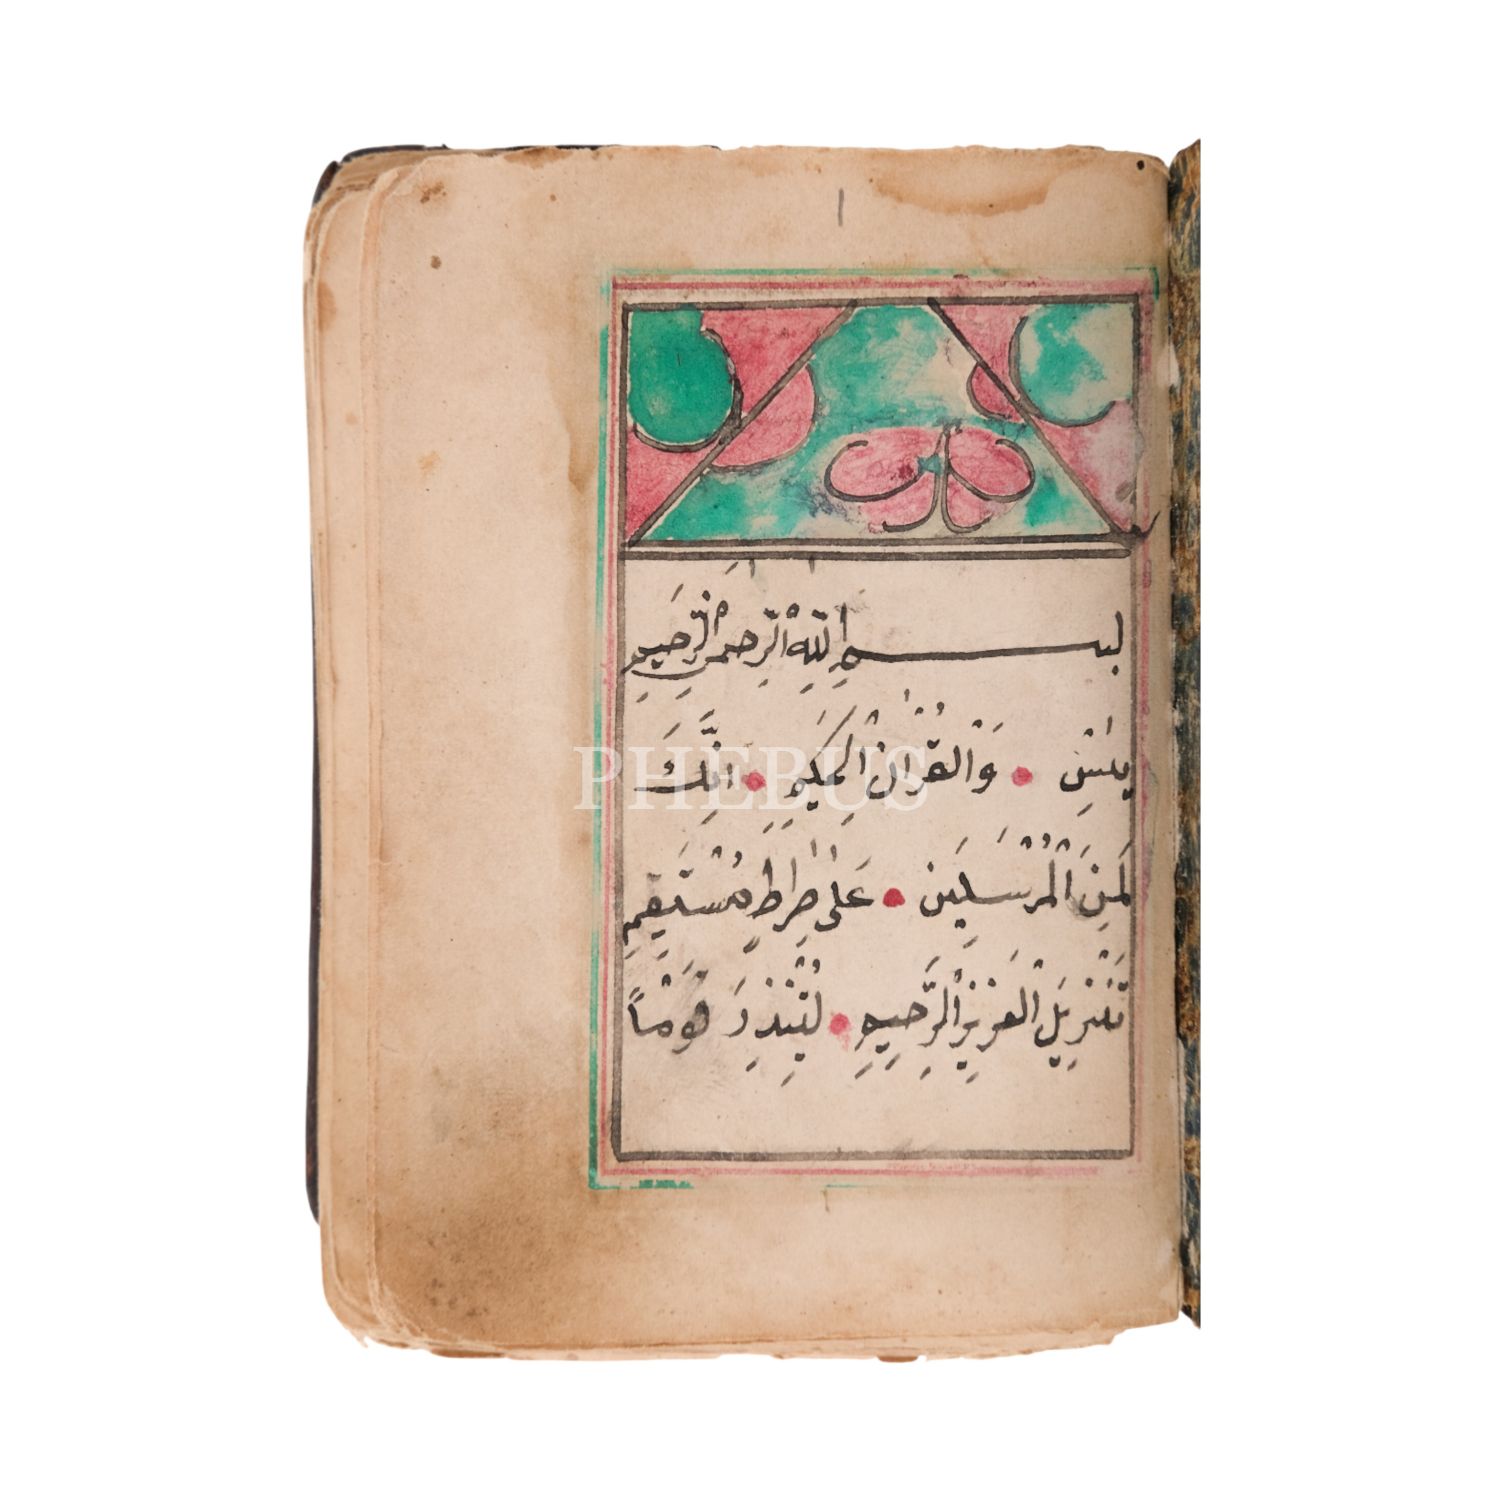 ١
بسم الله الرحمن الرحيم
يٰسٓ وَالْقُرْاٰنِ الْحَكِيمِ اِنَّكَ
لَمِنَ الْمُرْسَلِينَ عَلٰى صِرَاطٍ مُسْتَقِيمٍ
تَنْزِيلَ الْعَزِيزِ الرَّحِيمِ لِتُنْذِرَ قَوْمًا
PHEBUS